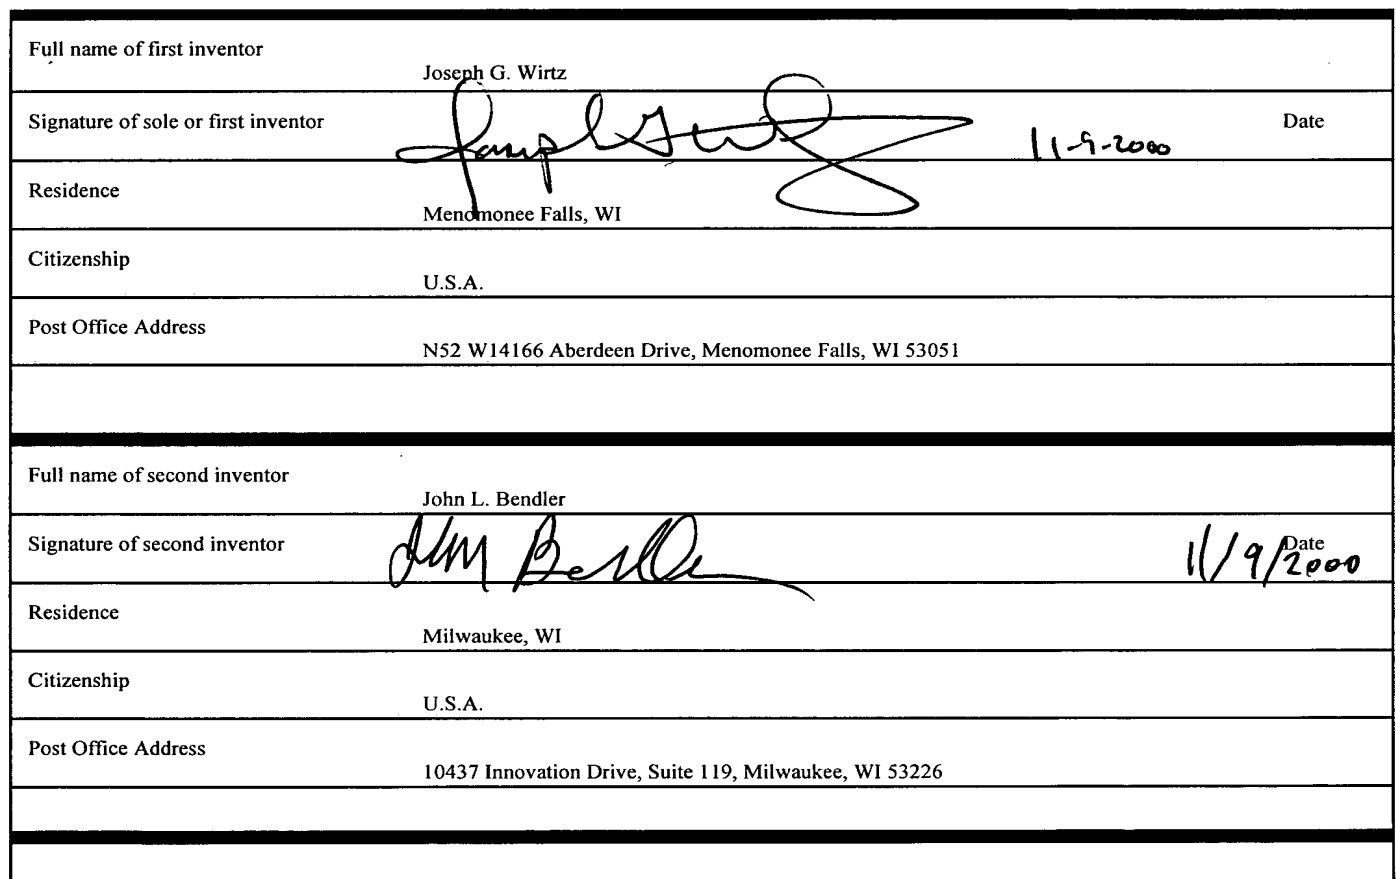 Full name of first inventor
Joseph G. Wirtz
Signature of sole or first inventor
Joseph G Wirtz
11-9-2000
Date
Residence
Menomonee Falls, WI
Citizenship
U.S.A.
Post Office Address
N52 W14166 Aberdeen Drive, Menomonee Falls, WI 53051
Full name of second inventor
John L. Bendler
Signature of second inventor
John Bendler
11/9/2000
Date
Residence
Milwaukee, WI
Citizenship
U.S.A.
Post Office Address
10437 Innovation Drive, Suite 119, Milwaukee, WI 53226